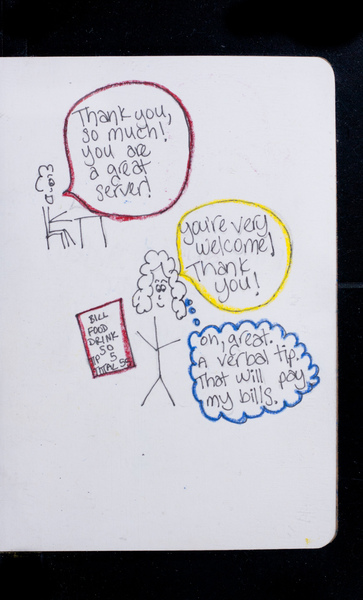 Thank you,
so much!
you are
a great
server!
you're very
welcome!
Thank
you!
BILL
FOOD
DRINK
50
TIP 5
TOTAL 55
oh, great.
A verbal tip.
That will pay
my bills.